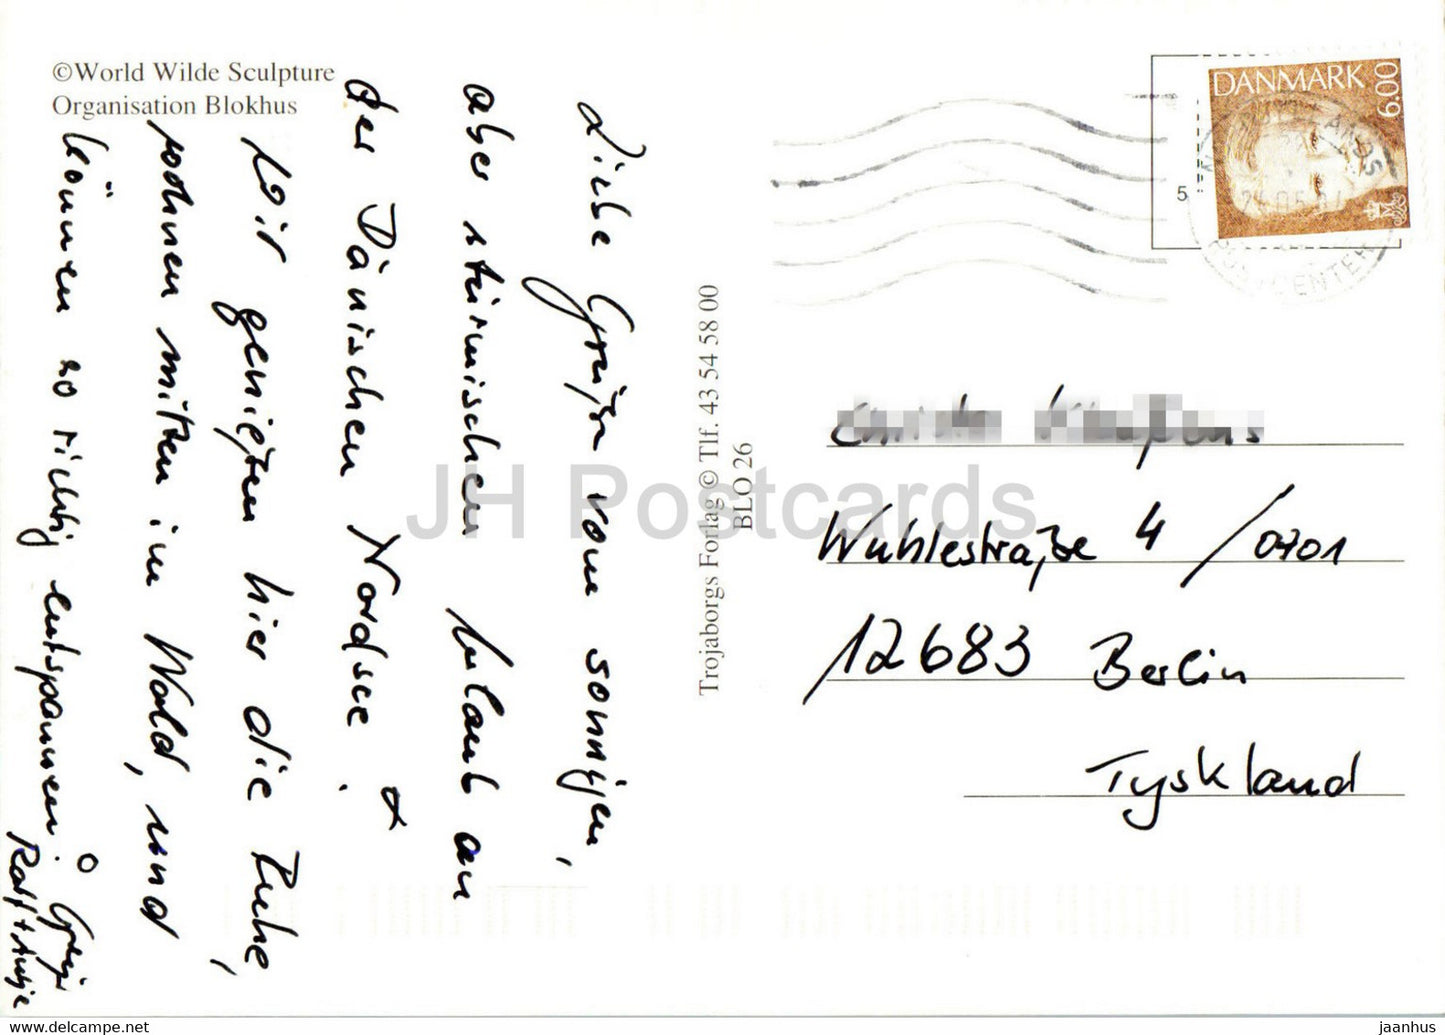 ©World Wilde Sculpture
Organisation Blokhus
Liebe Grüße vom sonnigen,
aber stürmischen Urlaub an
der Dänischen Nordsee.
Wir genießen hier die Ruhe,
wohnen mitten im Wald, und
können so richtig entspannen.
Grüße
Ralf + Antje
Trojaborgs Forlag © Tlf. 43 54 58 00
BLO 26
DANMARK 6.00
5
Wuhlestraße 4 / 0701
12683 Berlin
Tyskland
JH Postcards
jaanhus / www.delcampe.net